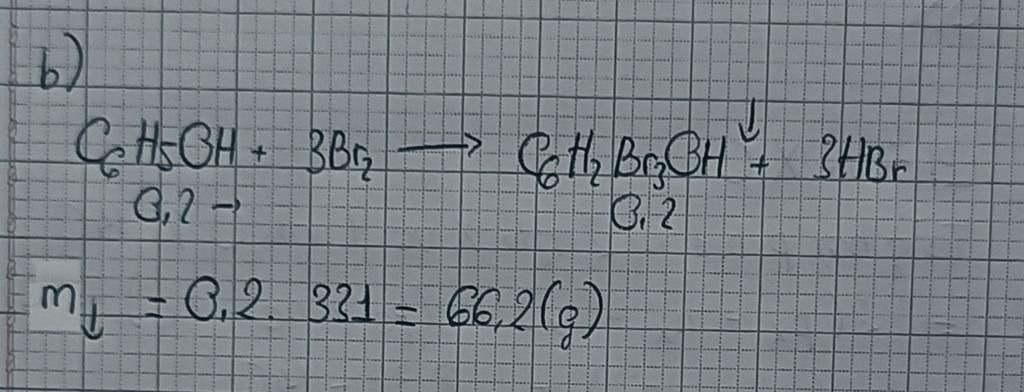 b)
C₆H₅OH + 3Br₂ ⟶ C₆H₂Br₃OH↓ + 3HBr
0,2 → 0,2
m↓ = 0,2. 331 = 66,2(g)